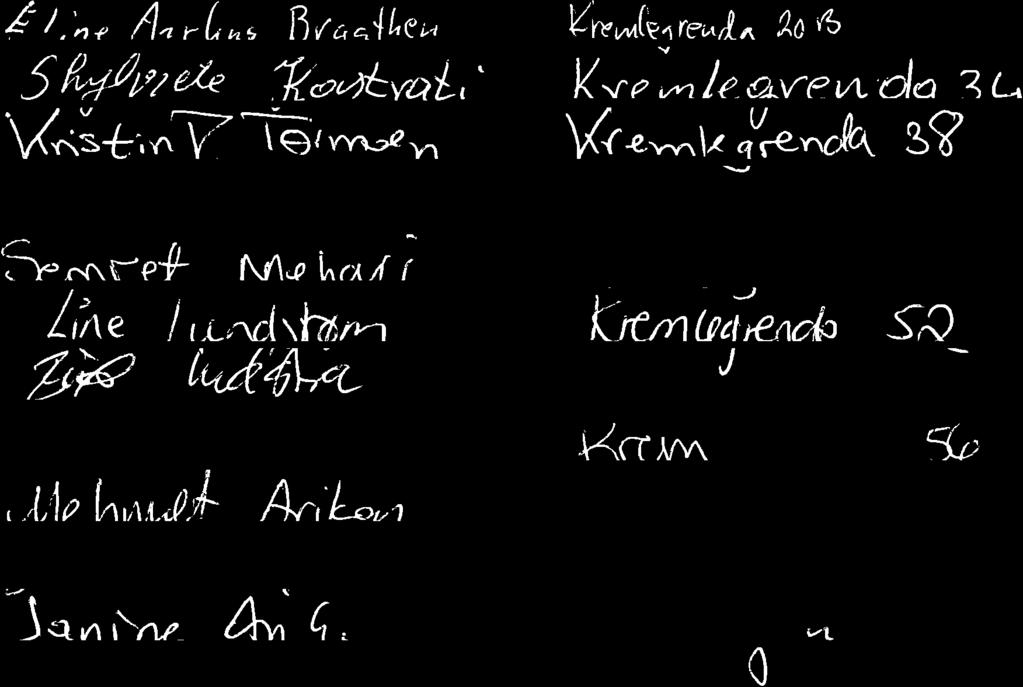 Eline Aarhus Braathen Kremlegrenda 20B
Shylqete Kastrati Kremlegrenda 34
Kristin V Tormoen Kremlegrenda 38
Semret Mehari
Line Lundstrøm Kremlegrenda 52
Krem 56
Mehmet Arikan
Janine An G.